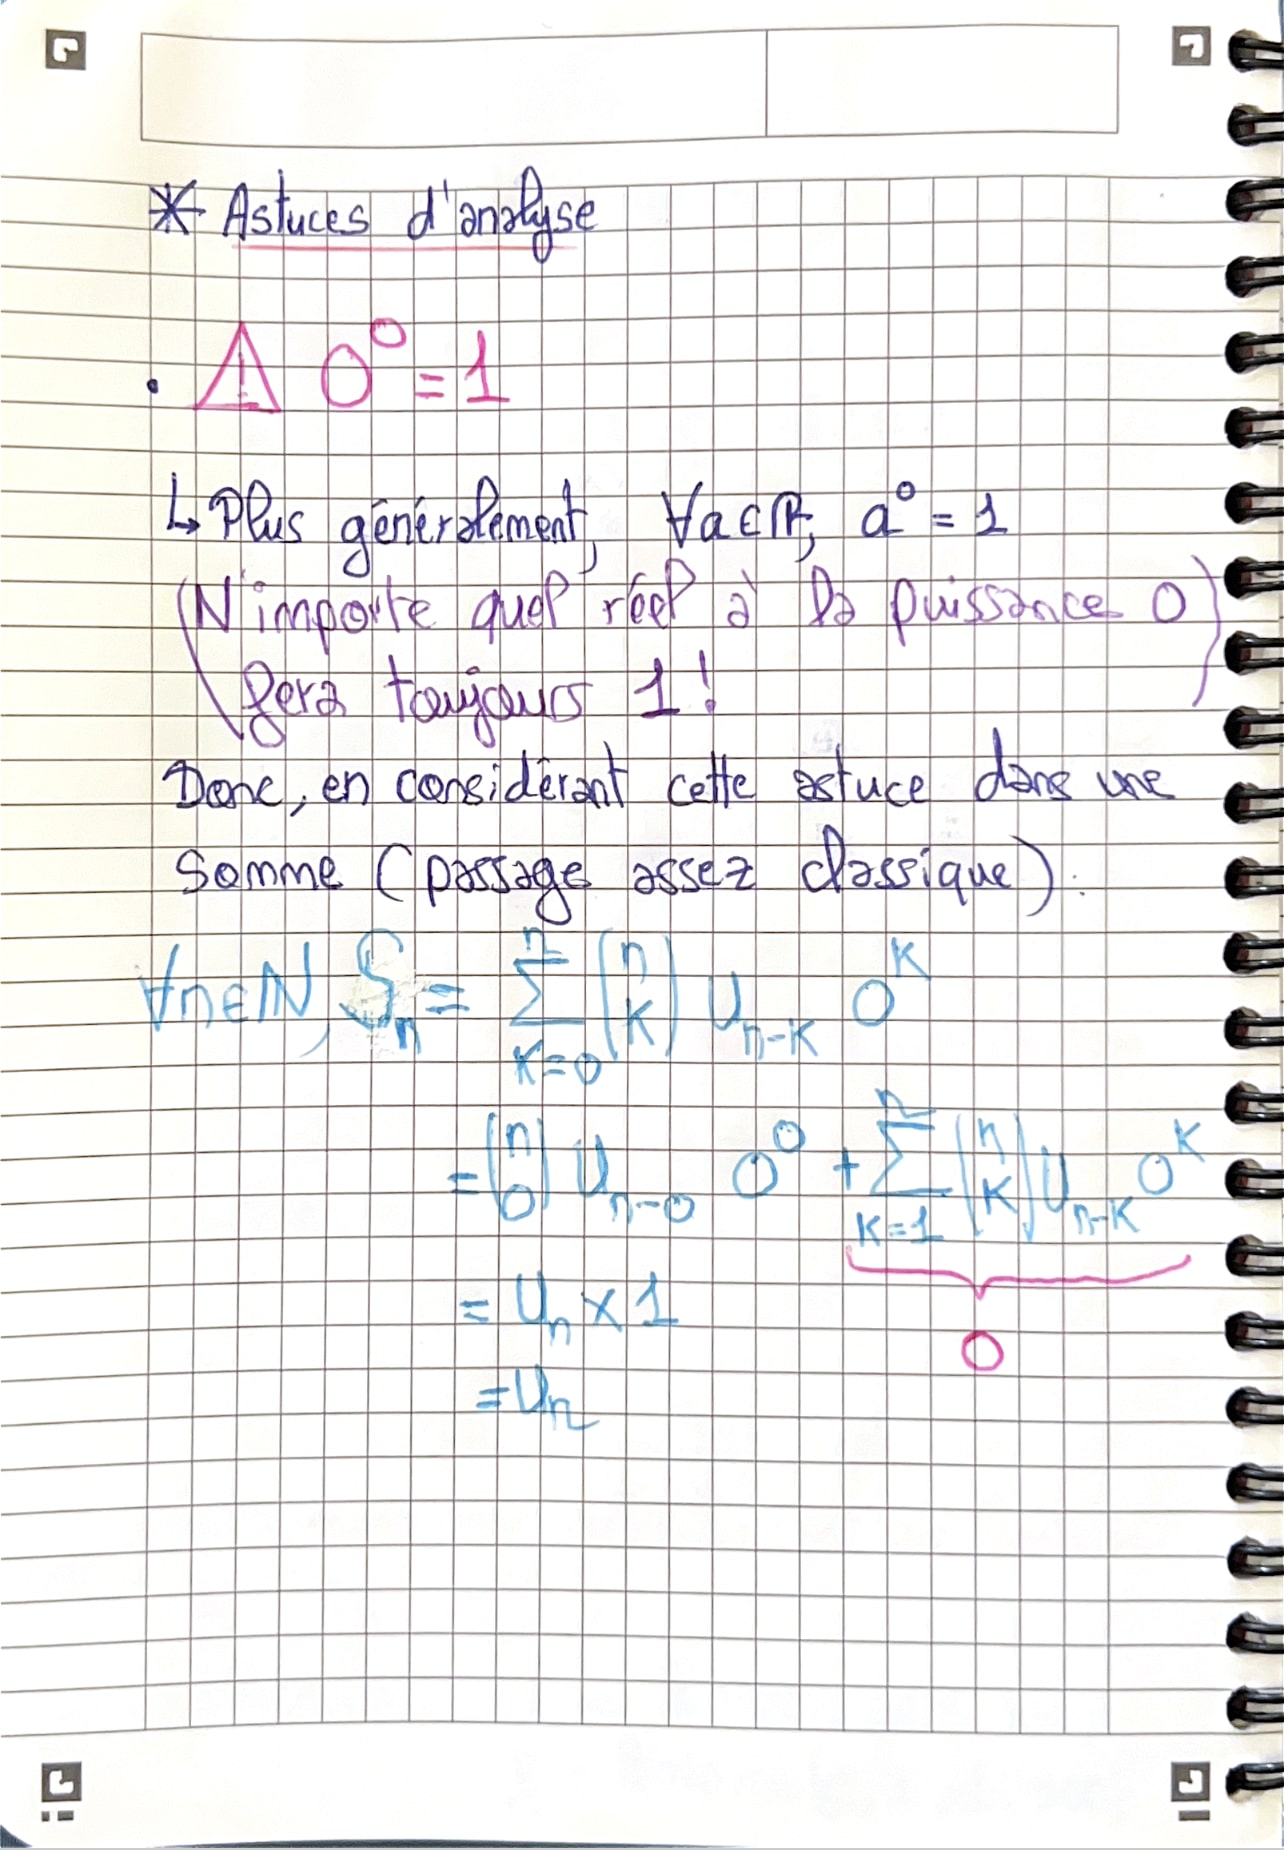 * Astuces d'analyse
• ⚠ 0⁰ = 1
↳ Plus généralement, ∀a∈ℝ, a⁰ = 1
(N'importe quel réel à la puissance 0
fera toujours 1!)
Donc, en considérant cette astuce dans une
somme (passage assez classique):
∀n∈ℕ, Sₙ = \sum_{k=0}^{n} \binom{n}{k} U_{n-k} 0^k
= \binom{n}{0} U_{n-0} 0^0 + \sum_{k=1}^{n} \binom{n}{k} U_{n-k} 0^k
= Uₙ × 1
0
= Uₙ